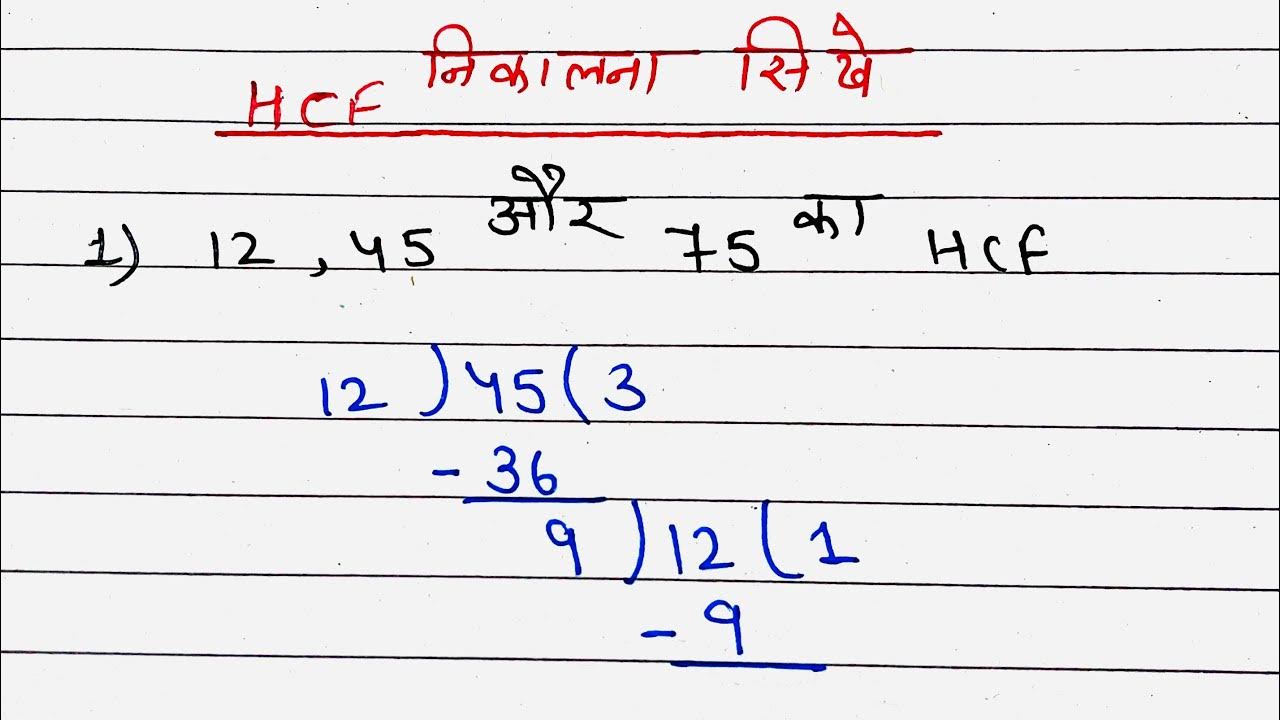 HCF निकालना सिखे
1) 12 , 45 और 75 का HCF
12 ) 45 ( 3
- 36
9 ) 12 ( 1
- 9